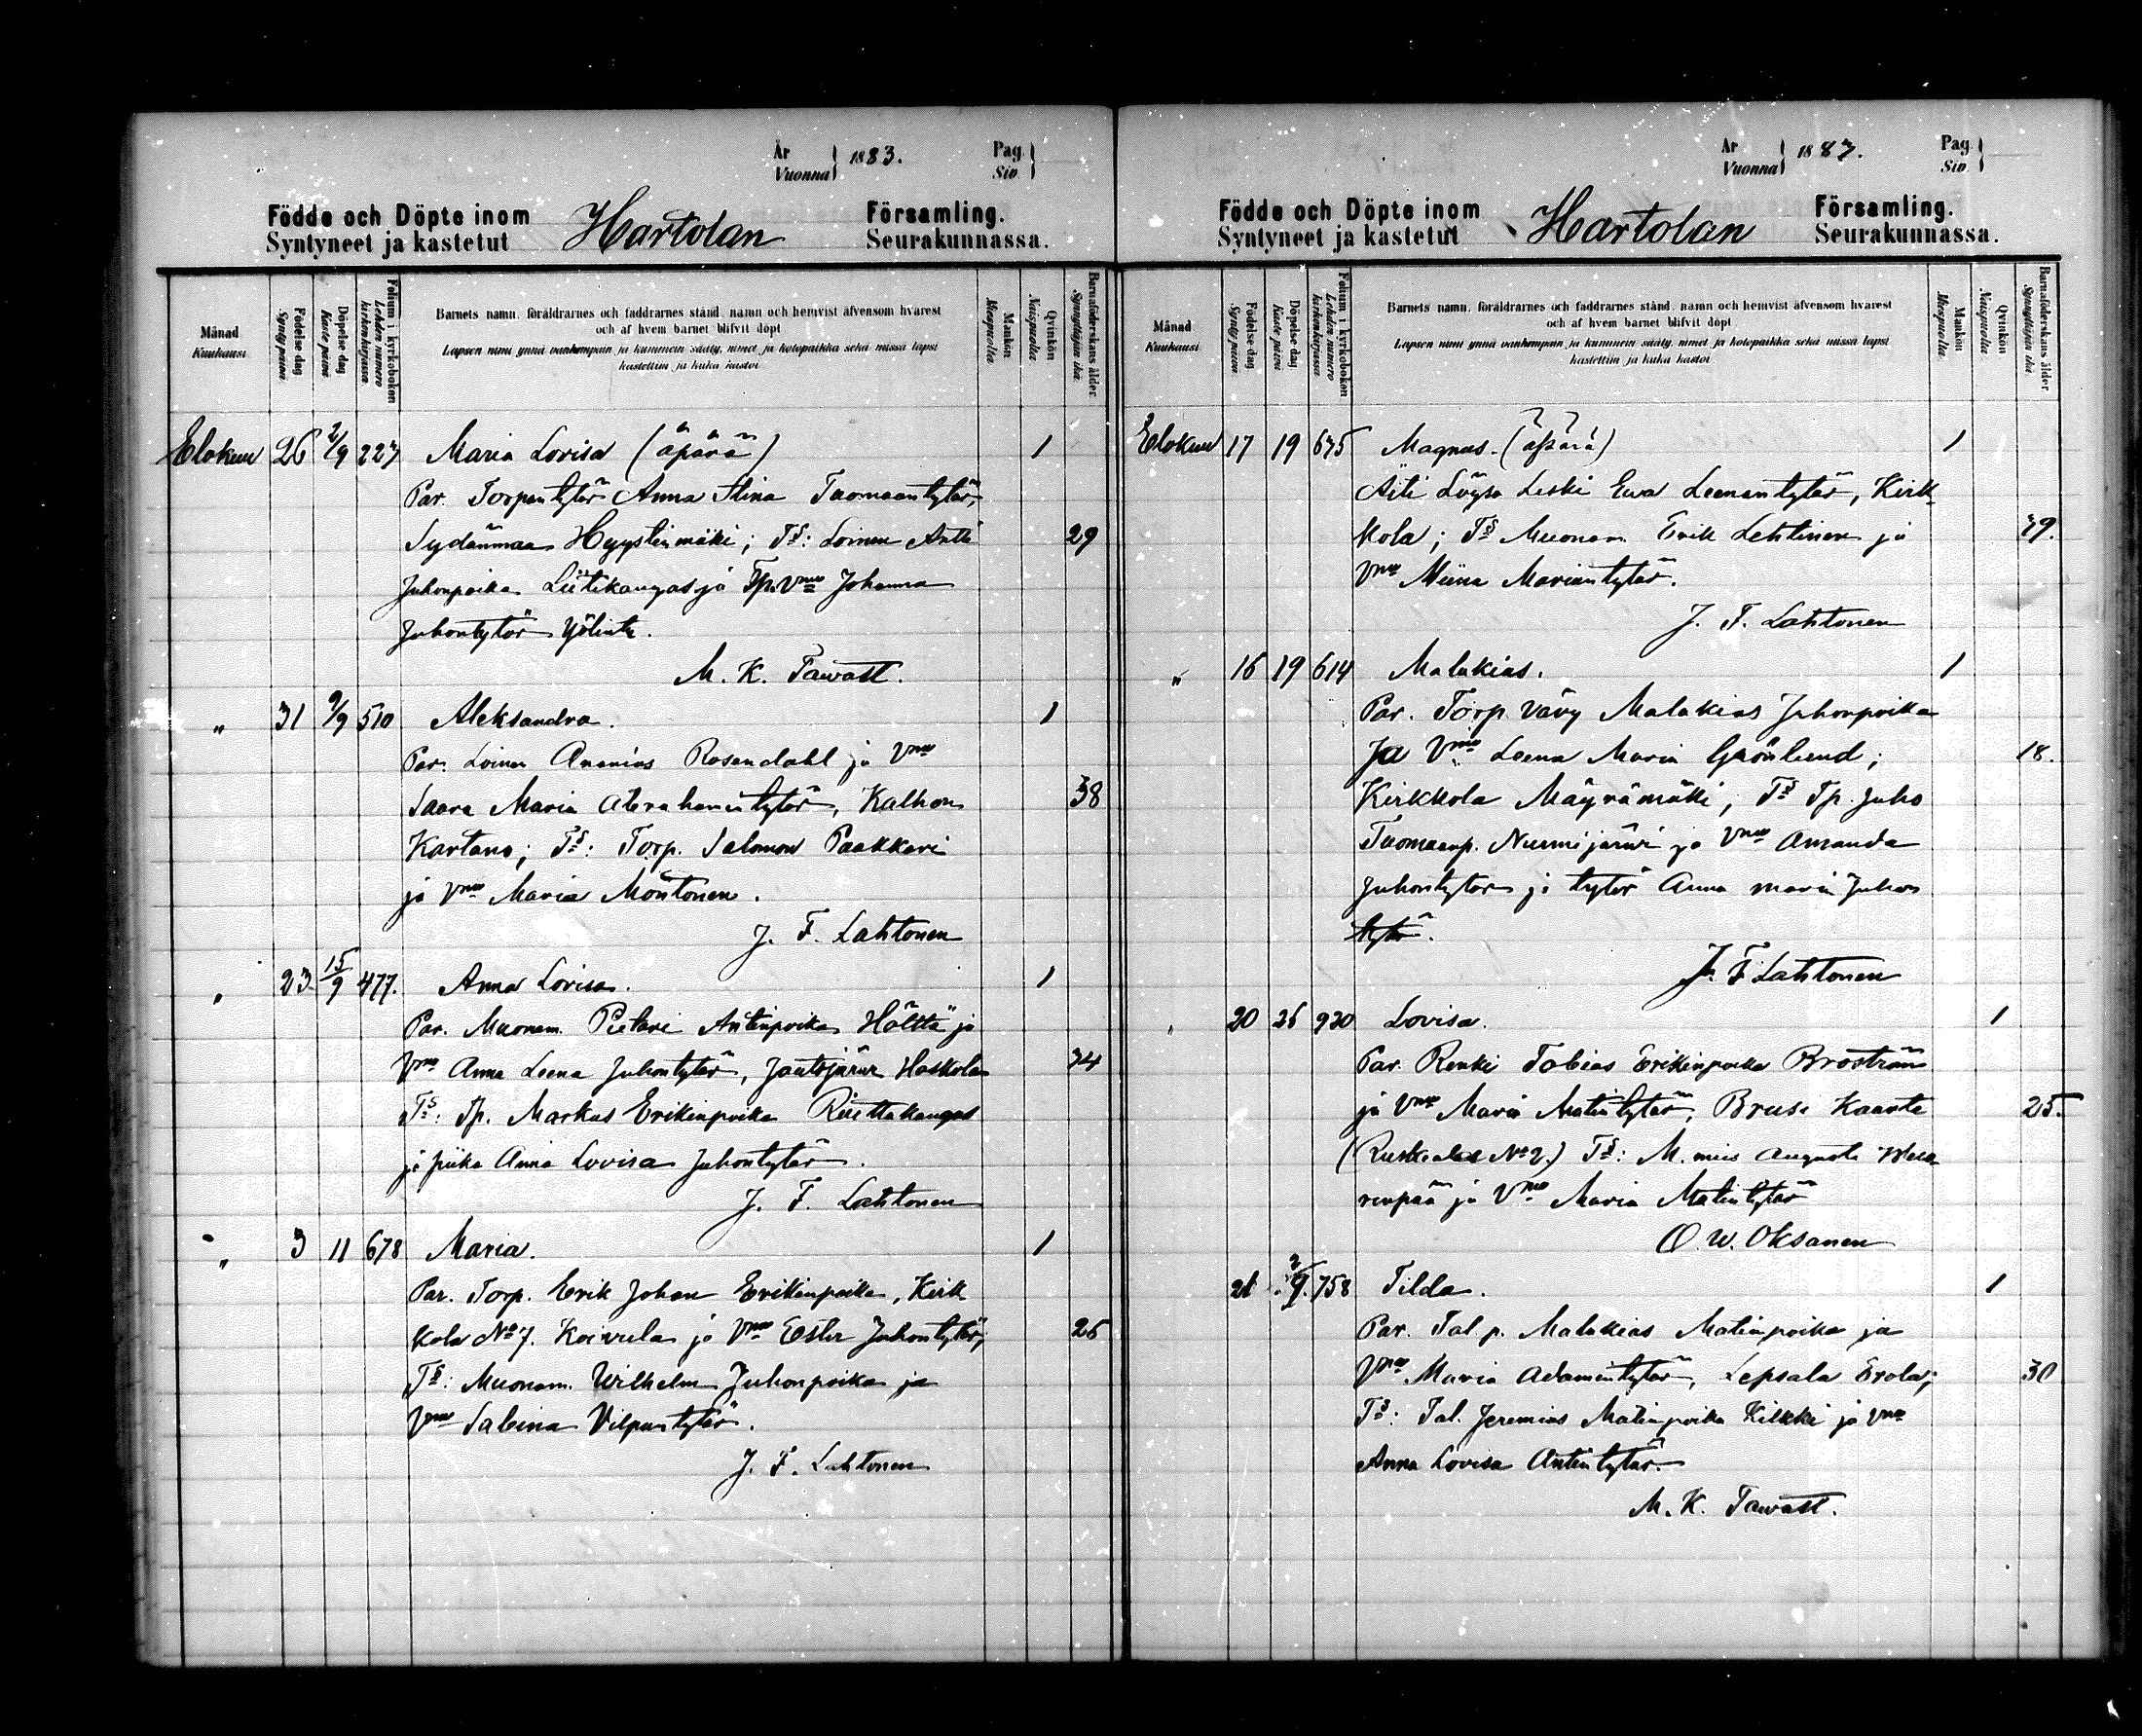 År
Vuonna } 1883.
Pag.
Siv. }
Födde och Döpte inom
Syntyneet ja kastetut
Hartolan
Församling.
Seurakunnassa.
Månad
Kuukausi
Födelse dag
Synty päivä
Döpelse dag
Kaste päivä
Folium i kyrkoboken
Lehden numero kirkonkirjassa
Barnets namn, föräldrarnes och faddrarnes stånd, namn och hemvist äfvensom hvarest
och af hvem barnet blifvit döpt
Lapsen nimi ynnä vanhempain ja kummein sääty, nimet ja kotopaikka sekä missä lapsi
kastettiin ja kuka kastoi
Mankön
Miespuolta
Qvinkön
Naispuolta
Barnaföderskans ålder
Synnyttäjän ikä
Elokuu 26 2/9 227 Maria Lovisa (äpärä) 1
Par. Torpantytär Anna Stina Tuomaantytär,
Sydänmaa Hyystinmäki; Ts: Loinen Antti 29
Juhonpoika Liitikangas ja Tp. Vmo Johanna
Juhontytär Yölintu.
M. K. Tawast.
" 31 9/9 510 Aleksandra. 1
Par. Loinen Ananias Rosendahl ja Vmo
Saara Maria Aberahamintytär, Kalhon 38
Kartano; Ts: Torp. Salomon Paakkari
ja Vmo Maria Montonen.
J. F. Lahtonen
" 23 15/9 477. Anna Lovisa. 1
Par. Muonam. Pietari Antinpoika Hölttä ja
Vmo Anna Leena Juhontytär, Joutsjärvi Haskola 34
Ts: Tp. Markus Erikinpoika Riuttakangas
ja piika Anna Lovisa Juhontytär.
J. F. Lahtonen
" 3 11 678 Maria. 1
Par. Torp. Erik Johan Erikinpoika, Kirk
kola No 7. Koivula ja Vmo Ester Juhontytär; 26
Ts: Muonam. Wilhelm Juhonpoika ja
Vmo Sabina Vilpuntytär.
J. F. Lahtonen
År
Vuonna } 1887.
Pag.
Siv. }
Födde och Döpte inom
Syntyneet ja kastetut
Hartolan
Församling.
Seurakunnassa.
Månad
Kuukausi
Födelse dag
Synty päivä
Döpelse dag
Kaste päivä
Folium i kyrkoboken
Lehden numero kirkonkirjassa
Barnets namn, föräldrarnes och faddrarnes stånd, namn och hemvist äfvensom hvarest
och af hvem barnet blifvit döpt
Lapsen nimi ynnä vanhempain ja kummein sääty, nimet ja kotopaikka sekä missä lapsi
kastettiin ja kuka kastoi
Mankön
Miespuolta
Qvinkön
Naispuolta
Barnaföderskans ålder
Synnyttäjän ikä
Elokuu 17 19 675 Magnus. (äpärä) 1
Äiti Löysä Leski Ewa Leenantytär, Kirk
kola; Ts Muonam. Erik Lehtinen ja 39.
Vmo Miina Mariantytär.
J. F. Lahtonen
" 16 19 614 Malakias. 1
Par. Torp vävy Malakias Juhonpoika
Ja Vmo Leena Maria Grönlund; 18.
Kirkkola Mäyrämäki; Ts Tp. Juho
Tuomaanp. Nurmijärvi ja Vmo Amanda
Juhontytär ja tytär Anna Maria Juhon
tytär.
J. F. Lahtonen
" 20 26 920 Lovisa. 1
Par. Renki Tobias Erikinpoika Broström
ja Vmo Maria Matintytär, Brusi Kaarta 25.
No 2.) Ts: M. mies Augusti
ja Vmo Maria Matintytär
O. W. Oksanen
21 2/9. 758 Tilda. 1
Par. Tal p. Malakias Matinpoika ja
Vmo Maria Adamintytär, Lepsala Erola; 30
Ts: Tal. Jeremias Matinpoika Kilkki ja Vmo
Anna Lovisa Antintytär.
M. K. Tawast.